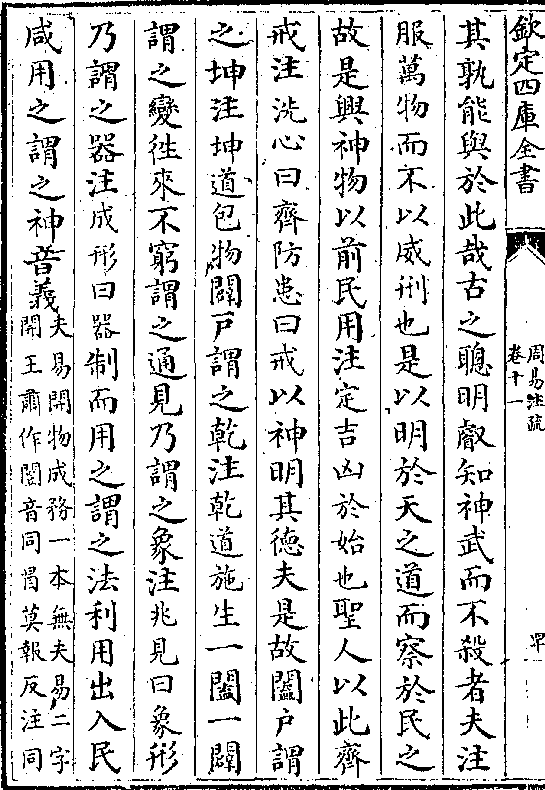 欽定四庫全書
周易注疏
卷十一
其孰能與於此哉古之聰明叡知神武而不殺者夫注
服萬物而不以威刑也是以明於天之道而察於民之
故是興神物以前民用注定吉凶於始也聖人以此齊
戒注洗心曰齊防患曰戒以神明其德夫是故闔户謂
之坤注坤道包物闢戸謂之乾注乾道施生一闔一闢
謂之變徃來不窮謂之通見乃謂之象注兆見曰象形
乃謂之器注成形曰器制而用之謂之法利用出入民
咸用之謂之神音義
夫易開物成務一本無夫易二字
開王肅作闓音同冒莫報反注同